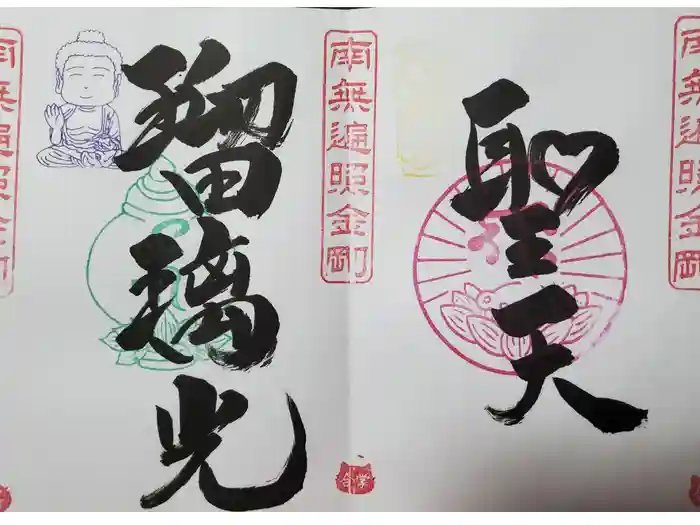 南無遍照金剛
聖天
南無遍照金剛
合掌
瑠璃光
南無遍照金剛